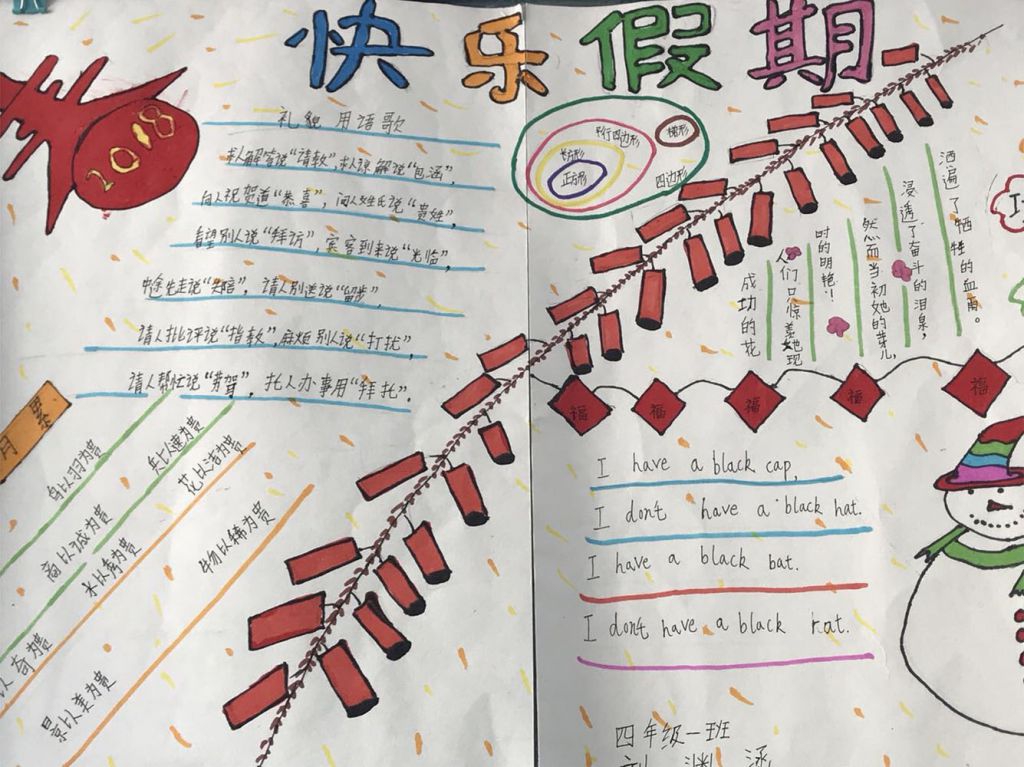 快乐假期
2018
礼貌用语歌
求人解答说“请教”，求人谅解说“包涵”，
向人祝贺道“恭喜”，问人姓氏说“贵姓”，
看望别人说“拜访”，宾客到来说“光临”，
中途先走说“失陪”，请人别送说“留步”，
请人批评说“指教”，麻烦别人说“打扰”，
请人帮忙说“劳驾”，托人办事用“拜托”。
平行四边形
梯形
长方形
正方形
四边形
成功的花
人们只惊羡她现
时的明艳！
然而当初她的芽儿，
浸透了奋斗的泪泉，
洒遍了牺牲的血雨。
福
福
福
福
福
月
以羽为贵
兵以速为贵
花以洁为贵
商以诚为贵
水以清为贵
物以稀为贵
以奇为贵
景以美为贵
I have a black cap,
I don't have a black hat.
I have a black bat.
I don't have a black rat.
四年级一班